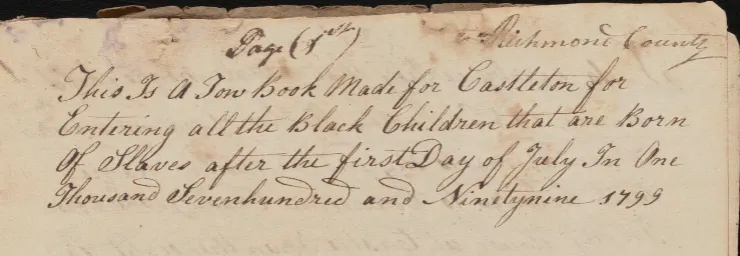 Page (1st) Richmond County
This Is A Tow Book Made for Castleton for
Entering all the Black Children that are Born
Of Slaves after the first Day of July In One
Thousand Sevenhundred and Ninetynine 1799